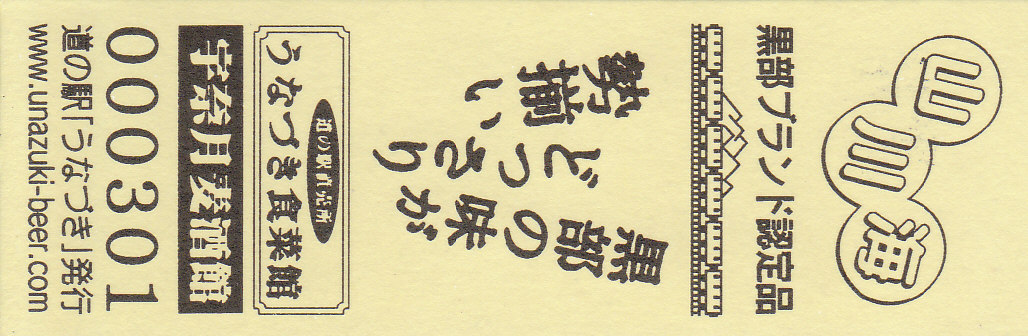 山
川
海
黒部ブランド認定品
黒部の味が
どっさり
勢揃い
道の駅直売所
うなづき食菜館
宇奈月麦酒館
000301
道の駅「うなづき」発行
www.unazuki-beer.com